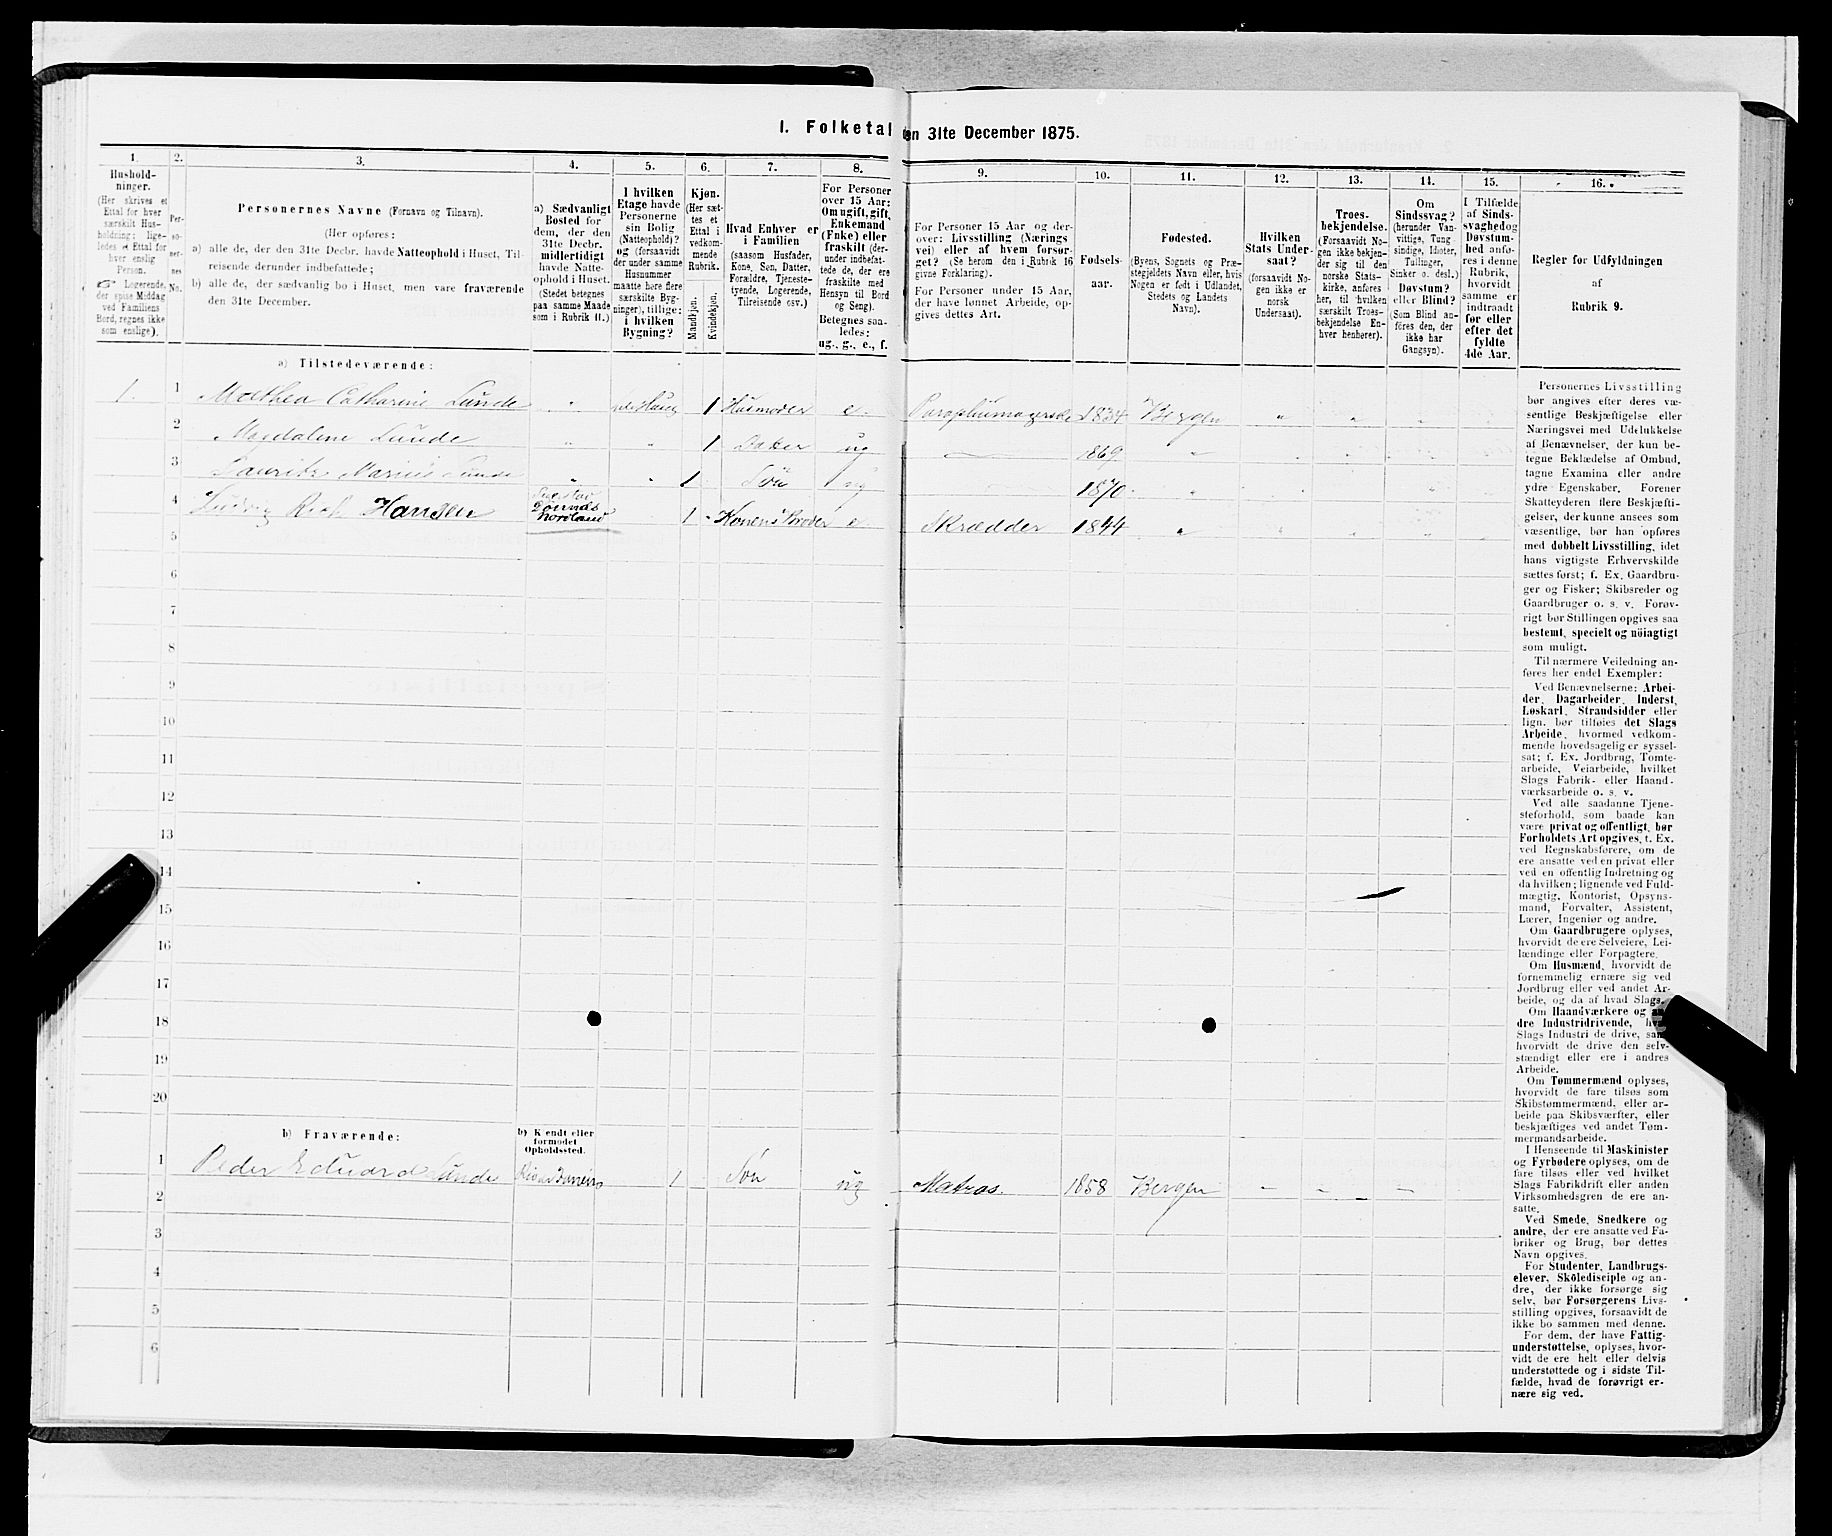 I. Folketal den 31te December 1875.
1.
Hushold-
ninger.
(Her skrives et
Ettal for hver
særskilt Hus-
holdning; lige-
ledes et Ettal for
hver enslig
Person.
Logerende,
der spise Middag
ved Familiens
Bord, regnes ikke
som enslige).
2.
Per-
so-
ner-
nes
No.
3.
Personernes Navne (Fornavn og Tilnavn).
(Her opføres:
a) alle de, der den 31te Decbr. havde Natteophold i Huset, Til-
reisende derunder indbefattede;
b) alle de, der sædvanlig bo i Huset, men vare fraværende
den 31te December.
4.
a) Sædvanligt
Bosted for
dem, der den
31te Decbr.
midlertidigt
havde Natte-
ophold i Huset.
(Stedet betegnes
paa samme Maade
som i Rubrik 11.)
5.
I hvilken
Etage havde
Personerne
sin Bolig
(Natteophold)?
og (forsaavidt
der under samme
Husnummer
maatte høre flere
særskilte Byg-
ninger), tillige:
i hvilken
Bygning?
6.
Kjøn.
(Her sæt-
tes et
Ettal i
vedkom-
mende
Rubrik.
Mandkjøn.
Kvindekjøn.
7.
Hvad Enhver er
i Familien
(saasom Husfader,
Kone, Søn, Datter,
Forældre, Tjeneste-
tyende, Logerende,
Tilreisende osv.)
8.
For Personer
over 15 Aar:
Om ugift, gift,
Enkemand
(Enke) eller
fraskilt (der-
under indbefat-
tede de, der ere
fraskilte med
Hensyn til Bord
og Seng).
Betegnes saa-
ledes:
ug., g., e., f.
9.
For Personer 15 Aar og der-
over: Livsstilling (Nærings
vei) eller af hvem forsør-
get? (Se herom den i Rubrik 16
givne Forklaring).
For Personer under 15 Aar,
der have lønnet Arbeide, op-
gives dettes Art.
10.
Fødsels-
aar.
11.
Fødested.
(Byens, Sognets og Præ-
stegjeldets Navn eller, hvis
Nogen er født i Udlandet,
Stedets og Landets
Navn).
12.
Hvilken
Stats Under-
saat?
(forsaavidt No-
gen ikke er
norsk
Undersaat).
13.
Troes-
bekjendelse.
(Forsaavidt No-
gen ikke bekjen-
der sig til den
norske Stats-
kirke, anføres
her, til hvilken
særskilt Troes-
bekjendelse En-
hver henhører).
14.
Om
Sindssvag?
(herunder Van-
vittige, Tung
sindige, Idioter,
Tullinger,
Sinker o. desl.)
Døvstum?
eller Blind?
(Som Blind an-
føres den, der
ikke har
Gangsyn).
15.
I Tilfælde
af Sinds-
svaghed og
Døvstum-
hed anfø-
res i denne
Rubrik,
hvorvidt
samme er
indtraadt
før eller
efter det
fyldte
4de Aar.
16.
Regler for Udfyldningen
af
Rubrik 9.
a) Tilstedeværende:
1. 1 Molthea Catharine Lunde 1 Husmoder e. 1834 Bergen
2 Magdalene Lunde 1 Datter ug 1869
3 Lauritz Marius Lunde 1 Søn ug 1870
4 Ludvig Hansen Nordland 1 Konens Broder e. Skrædder 1844
5
6
7
8
9
10
11
12
13
14
15
16
17
18
19
20
b) Fraværende:
b) Kjendt eller
formodet
Opholdssted.
1 Peder Eduard Lunde 1 Søn ug Matros. 1858 Bergen
2
3
4
5
6
Personernes Livsstilling
bør angives efter deres væ-
sentlige Beskjæftigelse eller
Næringsvei med Udelukkelse
af Benævnelser, der kun be-
tegne Beklædelse af Ombud,
tagne Examina eller andre
ydre Egenskaber. Forener
Skatteyderen flere Beskjæfti-
gelser, der kunne ansees som
væsentlige, bør han opføres
med dobbelt Livsstilling, idet
hans vigtigste Erhvervskilde
sættes først; f. Ex. Gaardbru-
ger og Fisker; Skibsreder og
Gaardbruger o. s. v. Forøv-
rigt bør Stillingen opgives saa
bestemt, specielt og nöiagtigt
som muligt.
Til nærmere Veiledning an-
føres her endel Exempler:
Ved Benævnelserne: Arbei-
der, Dagarbeider, Inderst,
Løskarl, Strandsidder eller
lign. bør tilføies det Slags
Arbeide, hvormed vedkom-
mende hovedsagelig er syssel-
sat; f. Ex. Jordbrug, Tomte-
arbeide, Veiarbeide, hvilket
Slags Fabrik- eller Haand-
værksarbeide o. s. v.
Ved alle saadanne Tjene-
steforhold, som baade kan
være privat og offentligt, bør
Forholdets Art opgives, t. Ex.
ved Regnskabsførere, om de
ere ansatte ved en privat eller
ved en offentlig Indretning og
da hvilken; lignende ved Fuld-
mægtig, Kontorist, Opsyns-
mand, Forvalter, Assistent,
Lærer, Ingeniør og andre.
Om Gaardbrugere oplyses,
hvorvidt de ere Selveiere, Lei-
lændinge eller Forpagtere.
Om Husmænd, hvorvidt de
fornemmelig ernære sig ved
Jordbrug eller ved andet Ar-
beide, og da af hvad Slags.
Om Haandværkere og an-
dre Industridrivende, hvad
Slags Industri de drive, samt
hvorvidt de drive den selv-
stændigt eller ere i andres
Arbeide.
Om Tømmermænd oplyses,
hvorvidt de fare tilsøs som
Skibstømmermænd, eller ar-
beide paa Skibsværfter, eller
beskjæftiges ved andet Tøm-
mermandsarbeide.
I Henseende til Maskinister
og Fyrbødere oplyses, om de
fare tilsøs eller ved hvilket
Slags Fabrikdrift eller anden
Virksomhedsgren de ere an-
satte.
Ved Smede, Snedkere og
andre, der ere ansatte ved Fa-
briker og Brug, bør dettes
Navn opgives.
For Studenter, Landbrugs-
elever, Skoledisciple og an-
dre, der ikke forsørge sig
selv, bør Forsørgerens Livs-
stilling opgives, forsaavidt de
ikke bo sammen med denne.
For dem, der have Fattig-
understøttelse, oplyses, hvor-
vidt de ere helt eller delvis
understøttede og i sidste Til-
fælde, hvad de forøvrigt er-
nære sig ved.